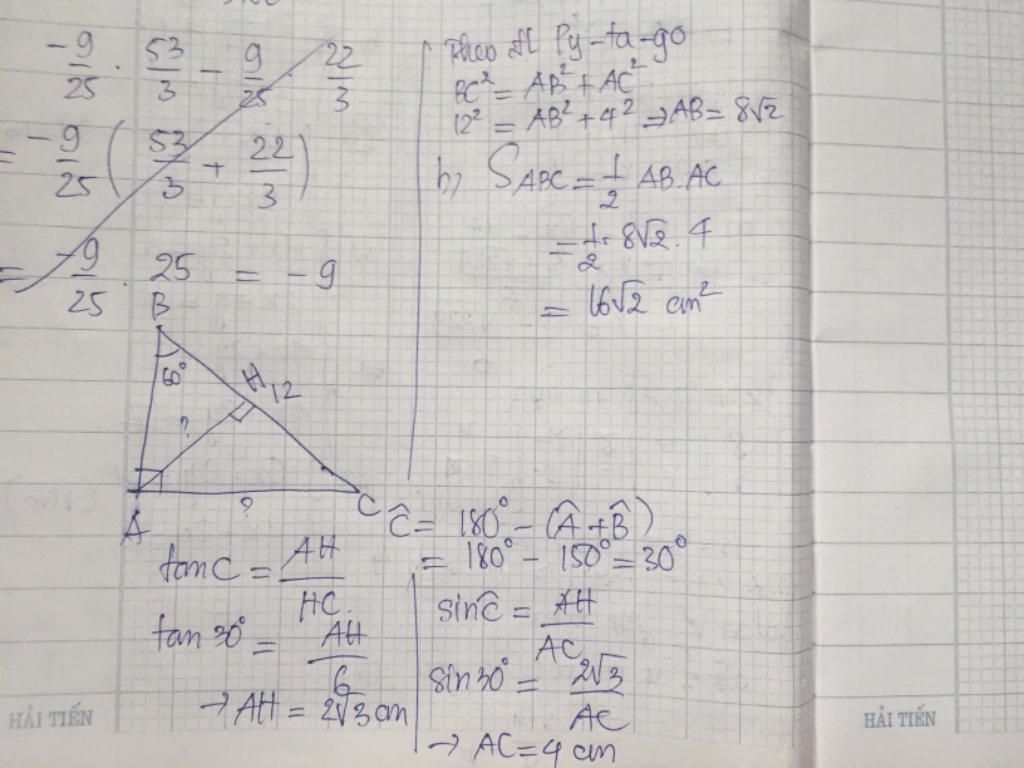 -9/25 . 53/3 - 9/25 . 22/3
= -9/25 ( 53/3 + 22/3 )
= -9/25 . 25 = -9
B
60°
H
12
?
A
?
C
tan C = AH/HC
tan 30° = AH/6
→ AH = 2√3 cm
Theo đl Py-ta-go
BC² = AB² + AC²
12² = AB² + 4² ⇒ AB = 8√2
b, S ABC = 1/2 AB.AC
= 1/2 . 8√2 . 4
= 16√2 cm²
Ĉ = 180° - (Â + B̂)
= 180° - 150° = 30°
sin Ĉ = AH/AC
sin 30° = 2√3/AC
→ AC = 4 cm
HẢI TIẾN
HẢI TIẾN